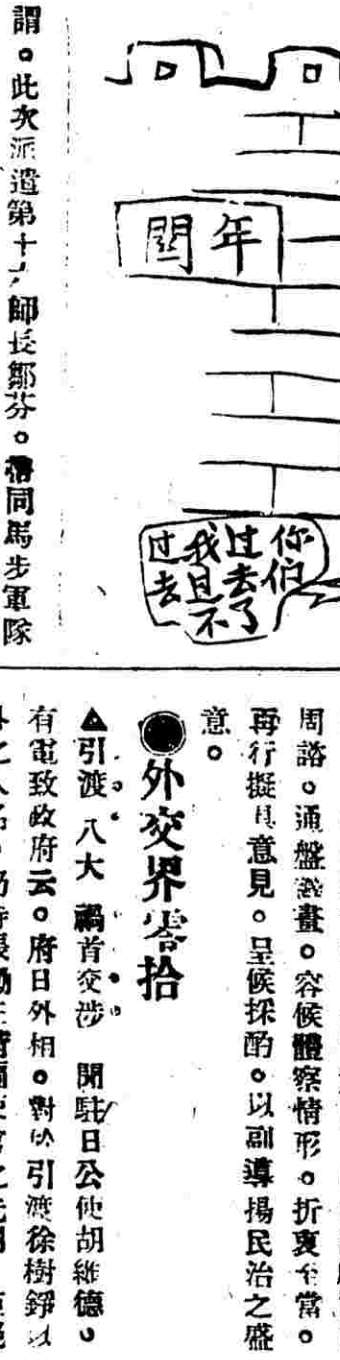 年關
你们
过去了
我且不
过去
謂。此次派遣第十六師長鄒芬。㩦同馬步軍隊
周諮。通盤籌畫。容候體察情形。折衷至當。
再行擬具意見。呈候採酌。以副導揚民治之盛
意。
●外交界零拾
▲引渡八大禍首交涉 聞駐日公使胡維德。
有電致政府云。府日外相。對於引渡徐樹錚以